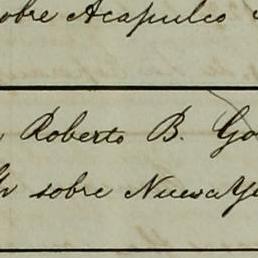 sobre Acapulco
Roberto B. Go
sobre Nueva Yo